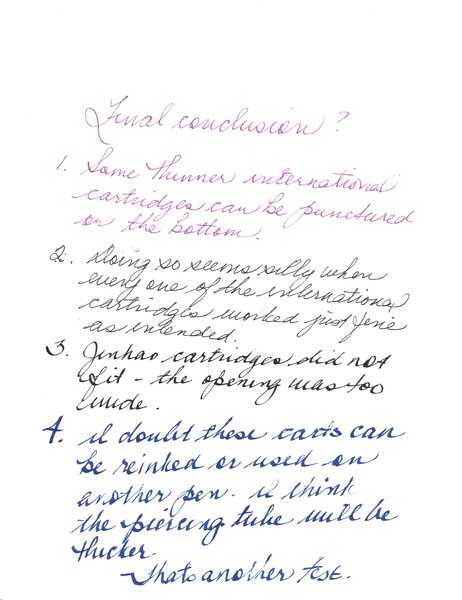 Final conclusion?
1. Some thinner international
cartridges can be punctured
on the bottom.
2. Doing so seems silly when
every one of the international
cartridges worked just fine
as intended.
3. Jinhao cartridges did not
fit - the opening was too
wide.
4. I doubt these carts can
be reinked or used on
another pen. I think
the piercing tube will be
thicker
-Thats another test.